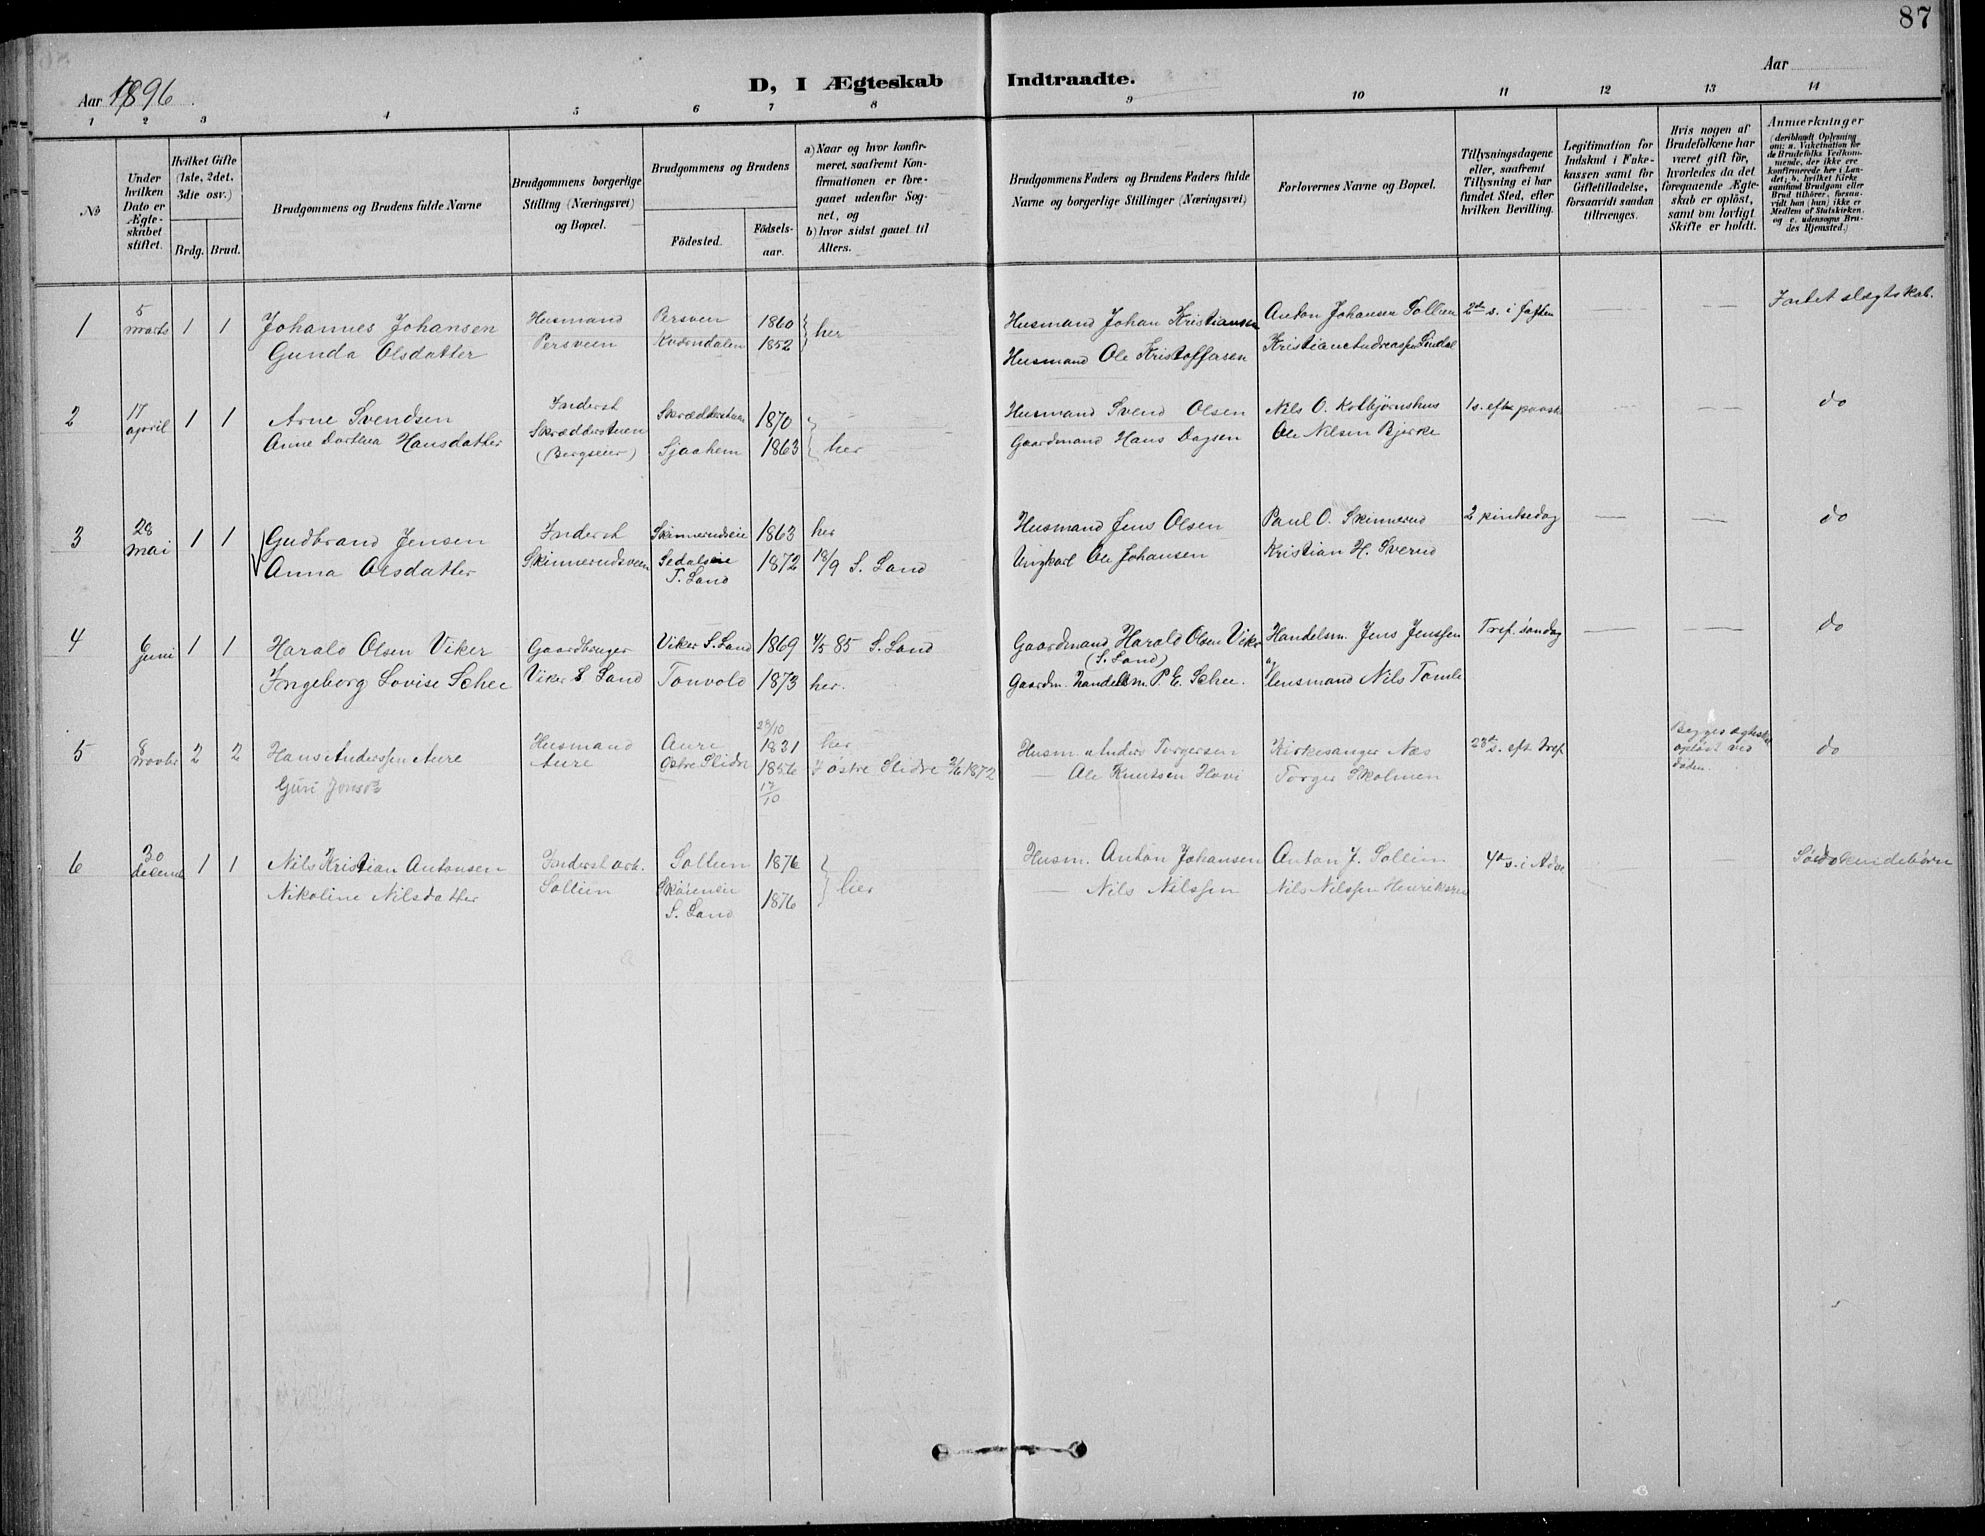 87
Aar 1896.
D, I Ægteskab Indtraadte.
Aar
1 2 3 4 5 6 7 8 9 10 11 12 13 14
No
Under hvilken Dato er Ægte-skabet stiftet.
Hvilket Gifte (1ste, 2det, 3die osv.)
Brdg. Brud.
Brudgommens og Brudens fulde Navne
Brudgommens borgerlige Stilling (Næringsvei) og Bopæl.
Brudgommens og Brudens
Fødested.
Fødsels-aar.
a) Naar og hvor konfir-meret, saafremt Kon-firmationen er fore-gaaet udenfor Sog-net, og
b) hvor sidst gaaet til Alters.
Brudgommens Faders og Brudens Faders fulde Navne og borgerlige Stillinger (Næringsvei)
Forlovernes Navne og Bopæl.
Tillysningsdagene eller, saafremt Tillysning ei har fundet Sted, efter hvilken Bevilling.
Legitimation for Indskud i Enke-kassen samt for Giftetilladelse, forsaavidt saadan tiltrænges.
Hvis nogen af Brudefolkene har været gift før, hvorledes da det foregaaende Ægte-skab er opløst, samt om lovligt Skifte er holdt.
Anmærkninger
(deriblandt Oplysning om: a. Vakcination for de Brudefolks Vedkom-mende, der ikke ere konfirmerede her i Lan-det, b. hvilket Kirke samfund Brudgom eller Brud tilhører, forsaa-vidt han (hun) ikke er Medlem af Statskirken, og c. udensogns Bru-des Hjemsted.)
1 5 marts 1 1 Johannes Johansen Husmand Persveen 1860 her Husmand Johan Kristiansen Anton Johansen Sollien 2den s. i fasten — — Intet slægtskab.
Gunda Olsdatter Persveen Kværndalen 1852 Husmand Ole Kristoffersen Kristian Andreassen Lindal
2 17 april 1 1 Arne Svendsen Inderst Skrædderstuen 1870 Husmand Svend Olsen Nils O. Kolbjørnshus 1 s. efter paaske — — do
Anne Dorthea Hansdatter Skrædderstuen (Bergseier) Sjaahem 1863 her Gaardmand Hans Dagsen Ole Nilsen Bjerke
3 28 mai 1 1 Gudbrand Jensen Inderst Skinnerudseie 1863 her Husmand Jens Olsen Paul O. Skinnerud 2 pintsedag — — do
Anna Olsdatter Skinnerudsveen Sedalseie 1872 18/9 S. Land Ungkarl Ole Johansen Kristian H. Sverud
T. Land
4 6 juni 1 1 Harald Olsen Viker Gaardbruger Viker S. Land 1869 4/5 85 S. Land Gaardmand Harald Olsen Viker Handelsm. Jens Jenssen Tref. søndag — — do
(S. Land)
Ingeborg Lovise Schee Viker S. Land Tonvold 1873 her. Gaardm. handelsm. P. E. Schee. Lensmand Nils Tomle
5 8 novbr 2 2 Hans Anderssen Aure Husmand Aure 28/10 1831 her Husm. Anders Torgersen Kirkesanger Næs 23de s. eft. tref. Begges ægteskab opløst ved døden. do
Guri Jonsdtr Aure Østre Slidre 1856 17/10 i østre Slidre 2/6 1872 — Ole Knutsen Hovi Torger Skolmen
6 30 decemb 1 1 Nils Kristian Antonsen Inderst arb. Sollien 1876 her Husm. Anton Johansen Anton J. Sollien 4de s. i Adve Sødskendebørn
Nikoline Nilsdatter Sollien Skøienei 1876 — Nils Nilssen Nils Nilssen Henriks
S. Land